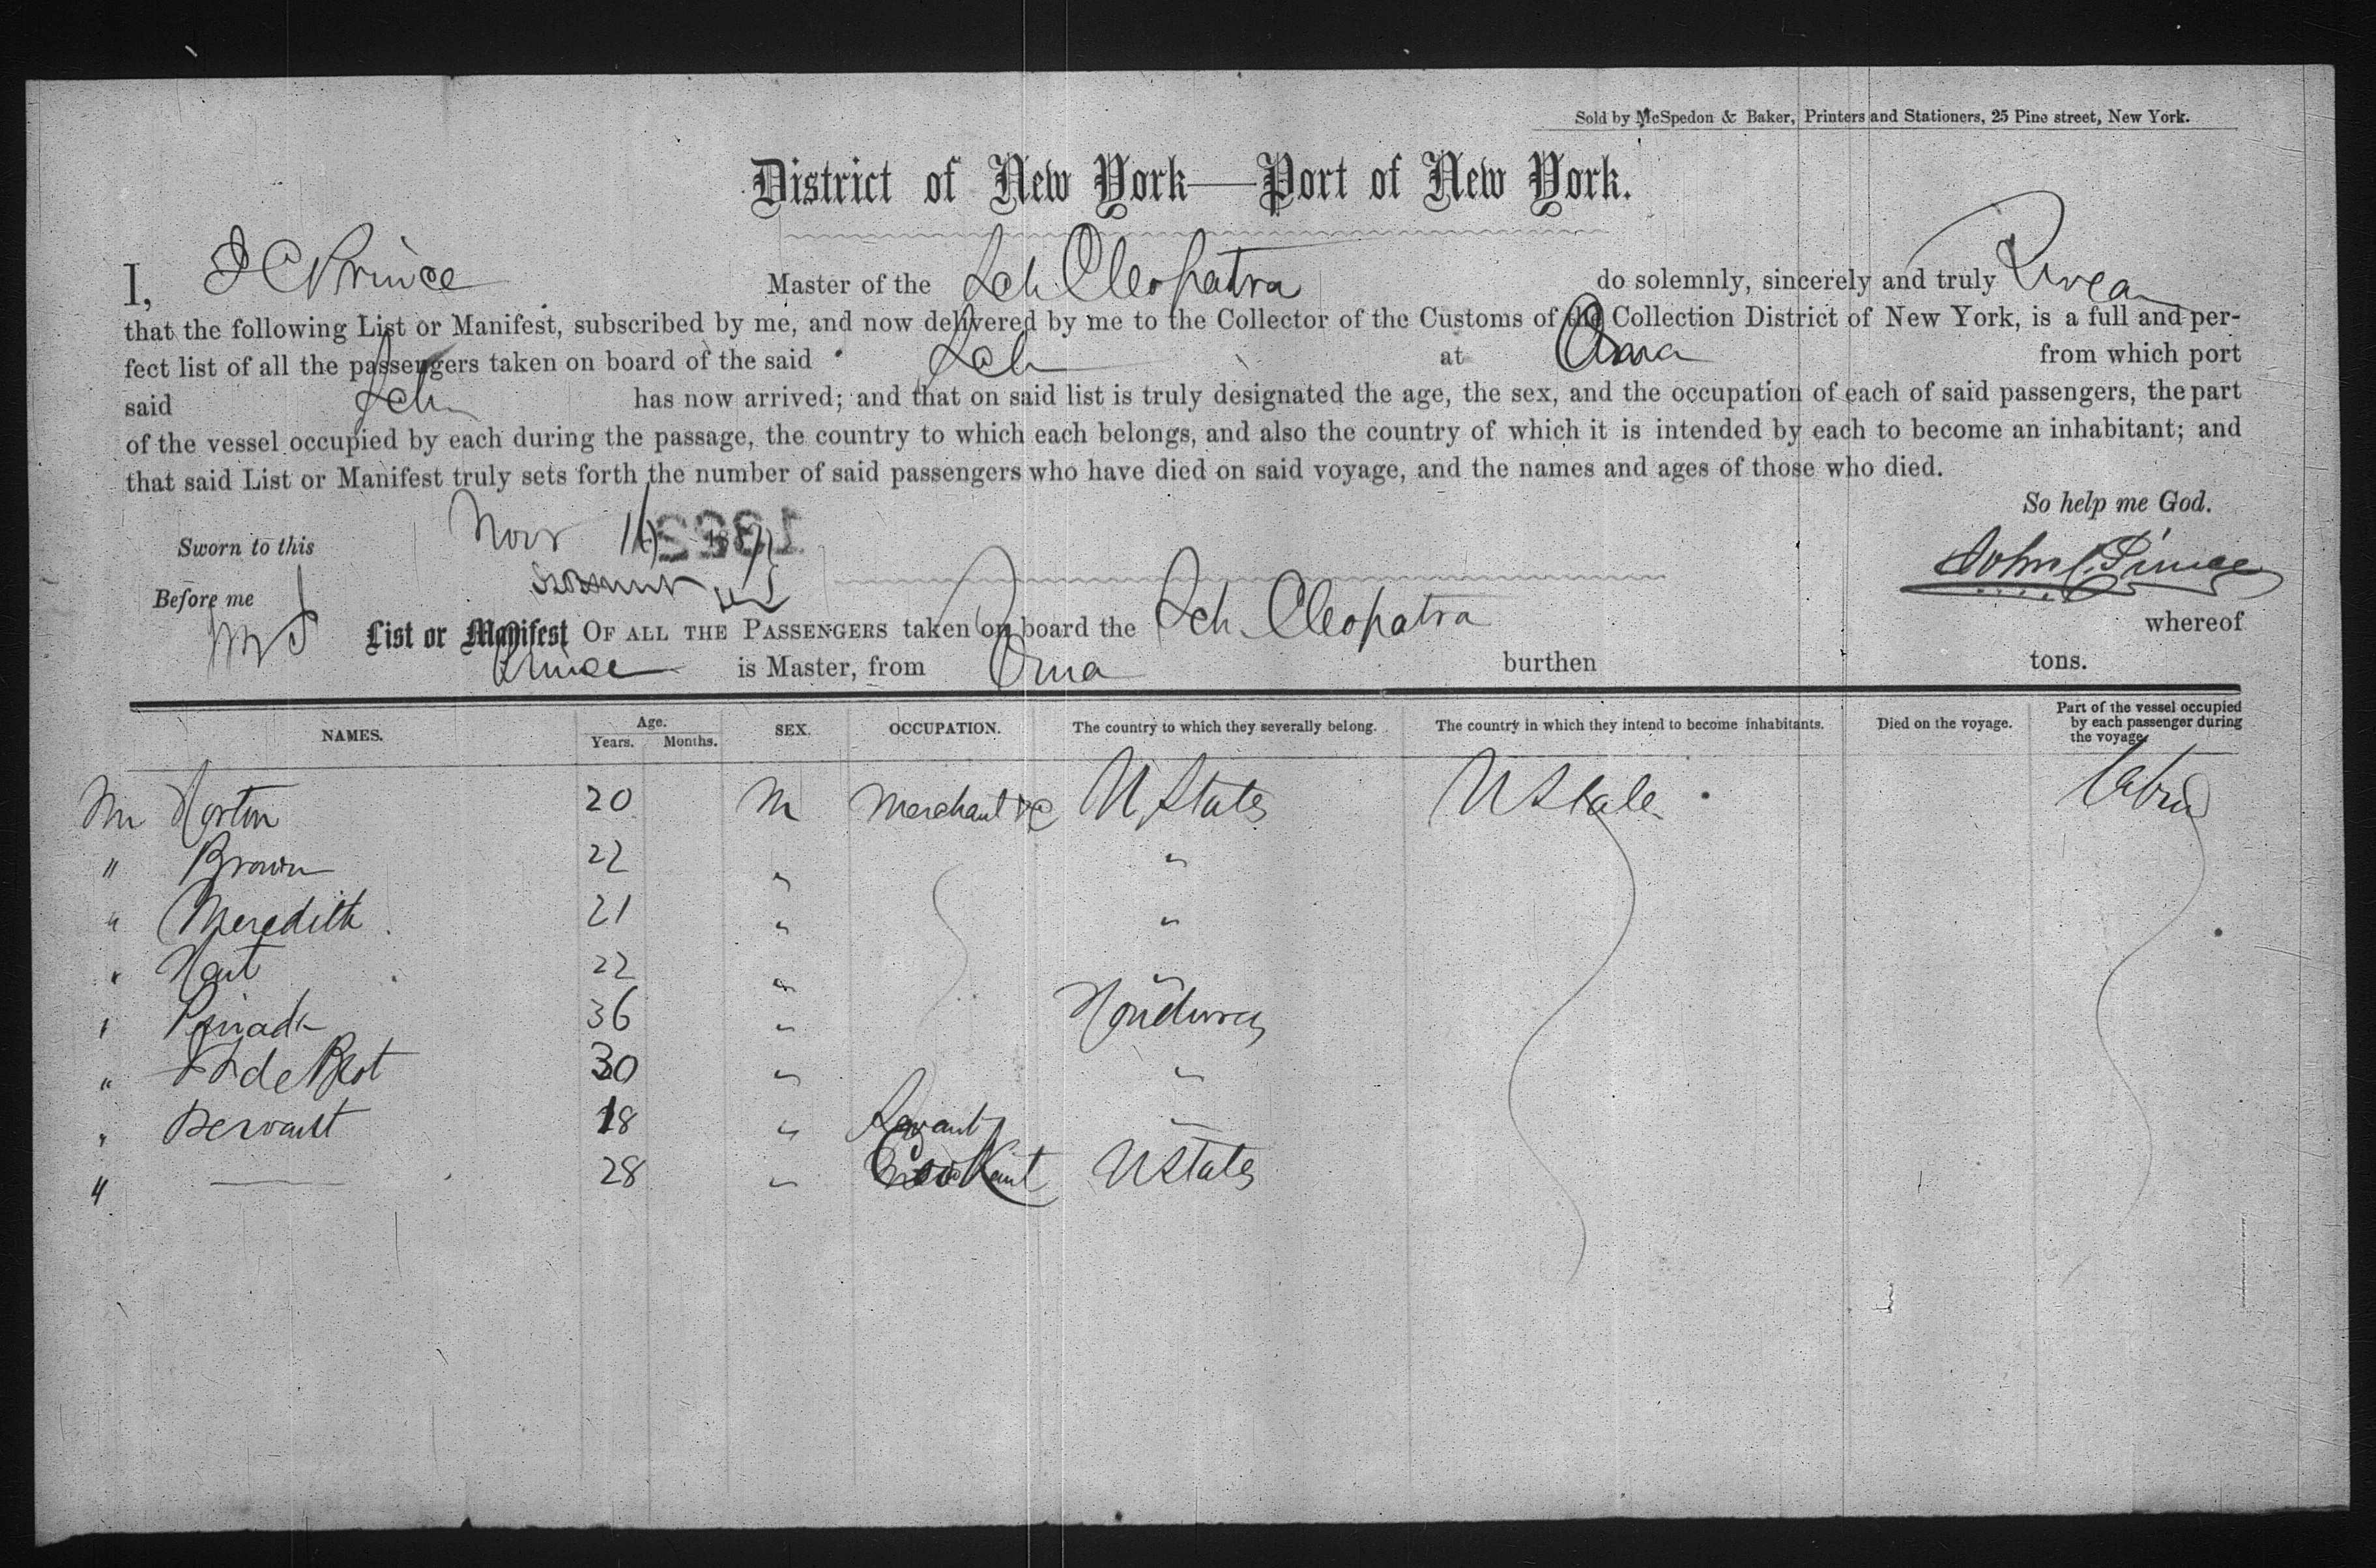 Sold by McSpedon & Baker, Printers and Stationers, 25 Pine street, New York.
District of New York—Port of New York.
I, J C Prince Master of the Sch Cleopatra do solemnly, sincerely and truly Swear
that the following List or Manifest, subscribed by me, and now delivered by me to the Collector of the Customs of the Collection District of New York, is a full and per-
fect list of all the passengers taken on board of the said Sch at Oma from which port
said Sch has now arrived; and that on said list is truly designated the age, the sex, and the occupation of each of said passengers, the part
of the vessel occupied by each during the passage, the country to which each belongs, and also the country of which it is intended by each to become an inhabitant; and
that said List or Manifest truly sets forth the number of said passengers who have died on said voyage, and the names and ages of those who died.
So help me God.
Sworn to this Nov 16
John C. Prince
Before me
List or Manifest OF ALL THE PASSENGERS taken on board the Sch Cleopatra whereof
Prince is Master, from Oma burthen tons.
NAMES. Age. Years. Months. SEX. OCCUPATION. The country to which they severally belong. The country in which they intend to become inhabitants. Died on the voyage. Part of the vessel occupied by each passenger during the voyage.
Mr Horton 20 M Merchant &c U States U State Cabin
" Brown 22 " "
" Meredith 21 " "
" 22 " "
" 36 " Honduras
" 30 " "
" Servant 18 " Servant "
" — 28 " Cook U States